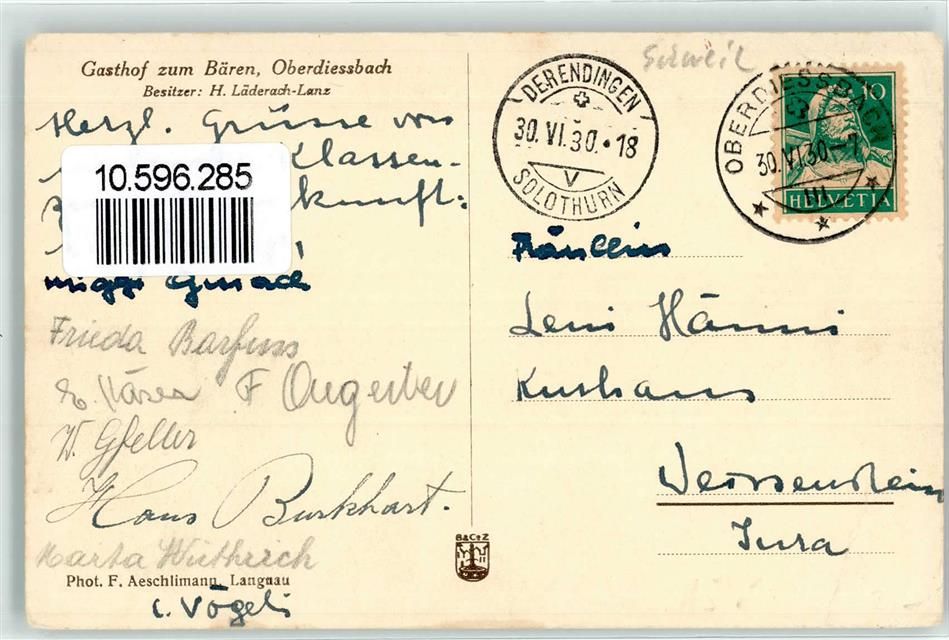 Gasthof zum Bären, Oberdiessbach
Besitzer: H. Läderach-Lanz
Herzl. Grüsse von
Klassen-
kunft:
10.596.285
Frieda Barfuss
W. Gfeller
Hans Burkhart.
Marta Wüthrich
Phot. F. Aeschlimann, Langnau
Vögeli
B&C:Z
Schweiz
DERENDINGEN
30.VI.30.•18
V
SOLOTHURN
OBERDIESSBACH
30.VI.30-7
III
10
HELVETIA
Fräulein
Leni Hänni
Kurhaus
Weissenstein
Jura